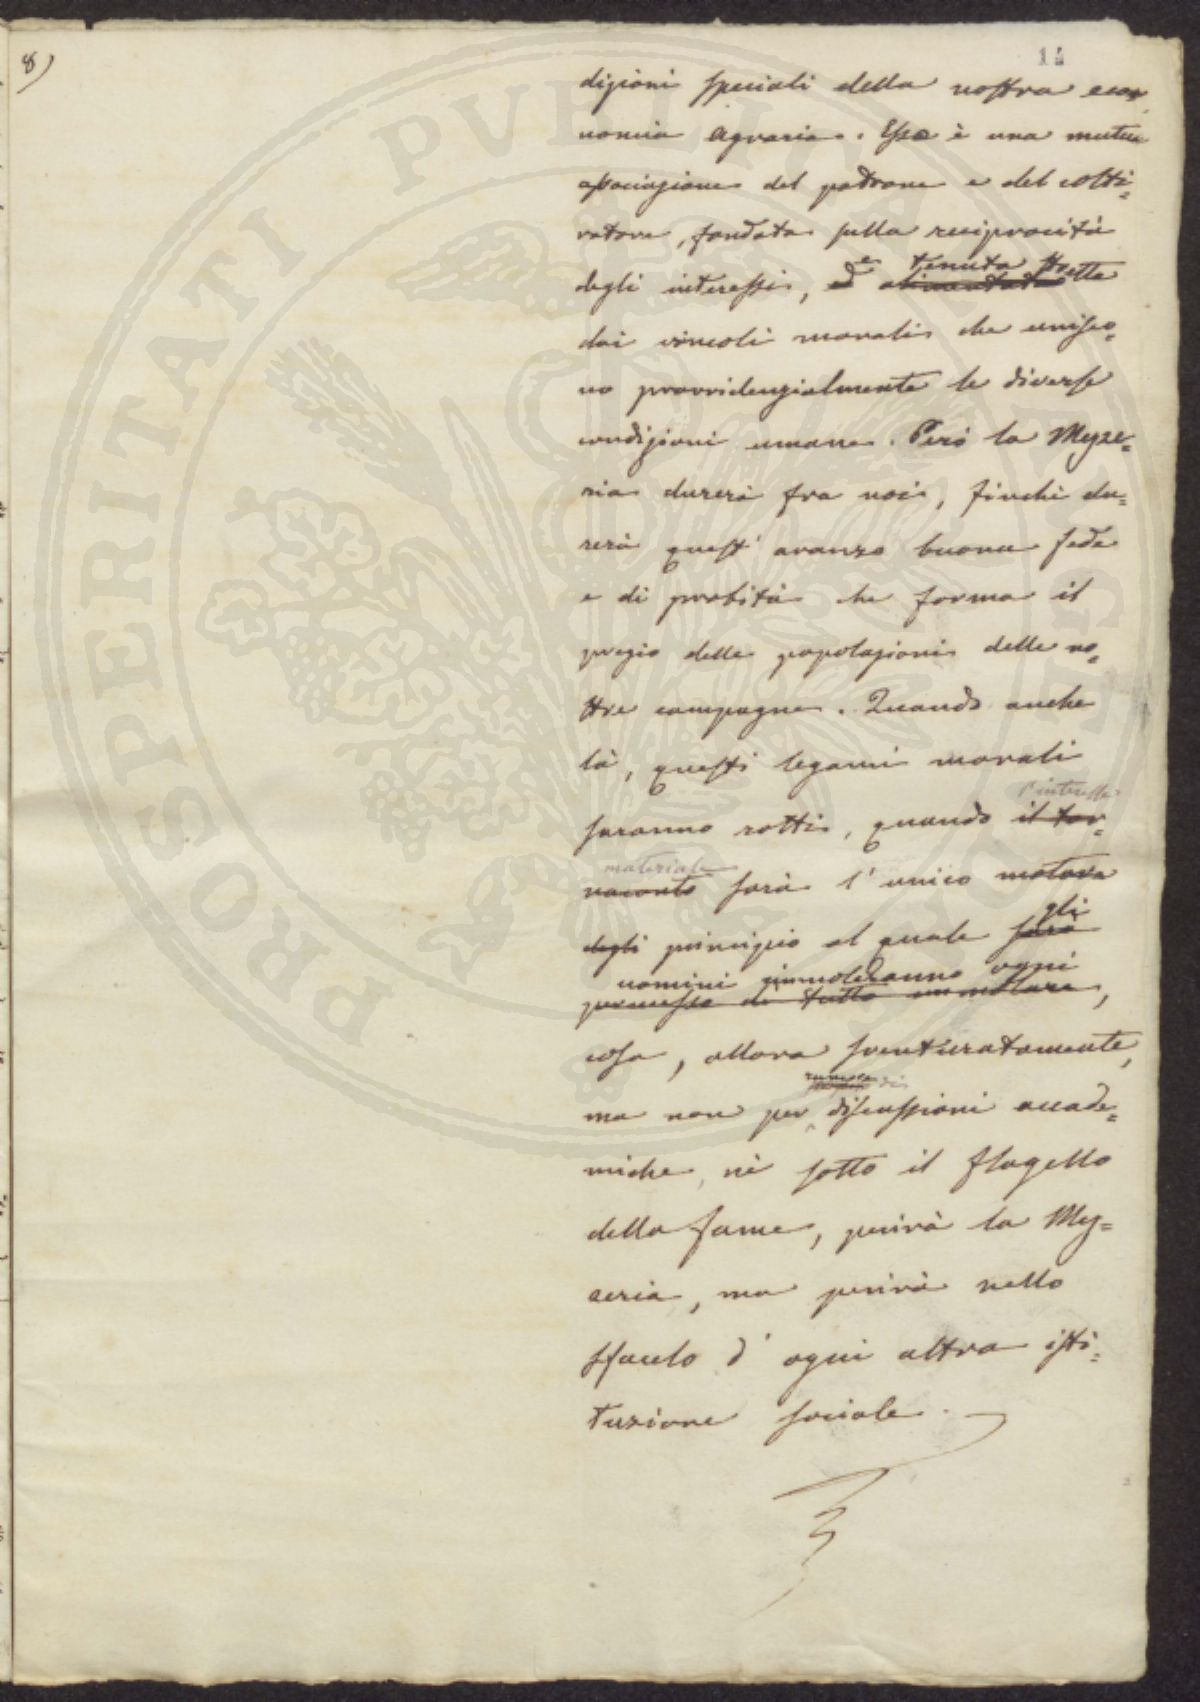 8)
14
dizioni speciali della nostra eco=
nomia agraria. Essa è una mutua
associazione del padrone e del colti=
vatore, fondata sulla reciprocità
e tenuta stretta
degli interessi, ed alimentata
dai vincoli morali che unisco=
no provvidenzialmente le diverse
condizioni umane. Però la Mezze=
ria durerà fra noi, finchè du=
rerà quest' avanzo buona fede
e di probità che forma il
pregio delle popolazioni delle no=
stre campagne. Quando anche
là, questi legami morali
l'interesse
saranno rotti, quando il tor=
materiale
naconto sarà l' unico motore
gli
degli principio al quale sarà
uomini immoleranno ogni
permesso di tutto immolare,
cosa, allora sventuratamente,
di
ma non per discussioni accade=
miche, nè sotto il flagello
della fame, perirà la Mez=
zeria, ma perirà nello
sfacelo d' ogni altra isti=
tuzione sociale.